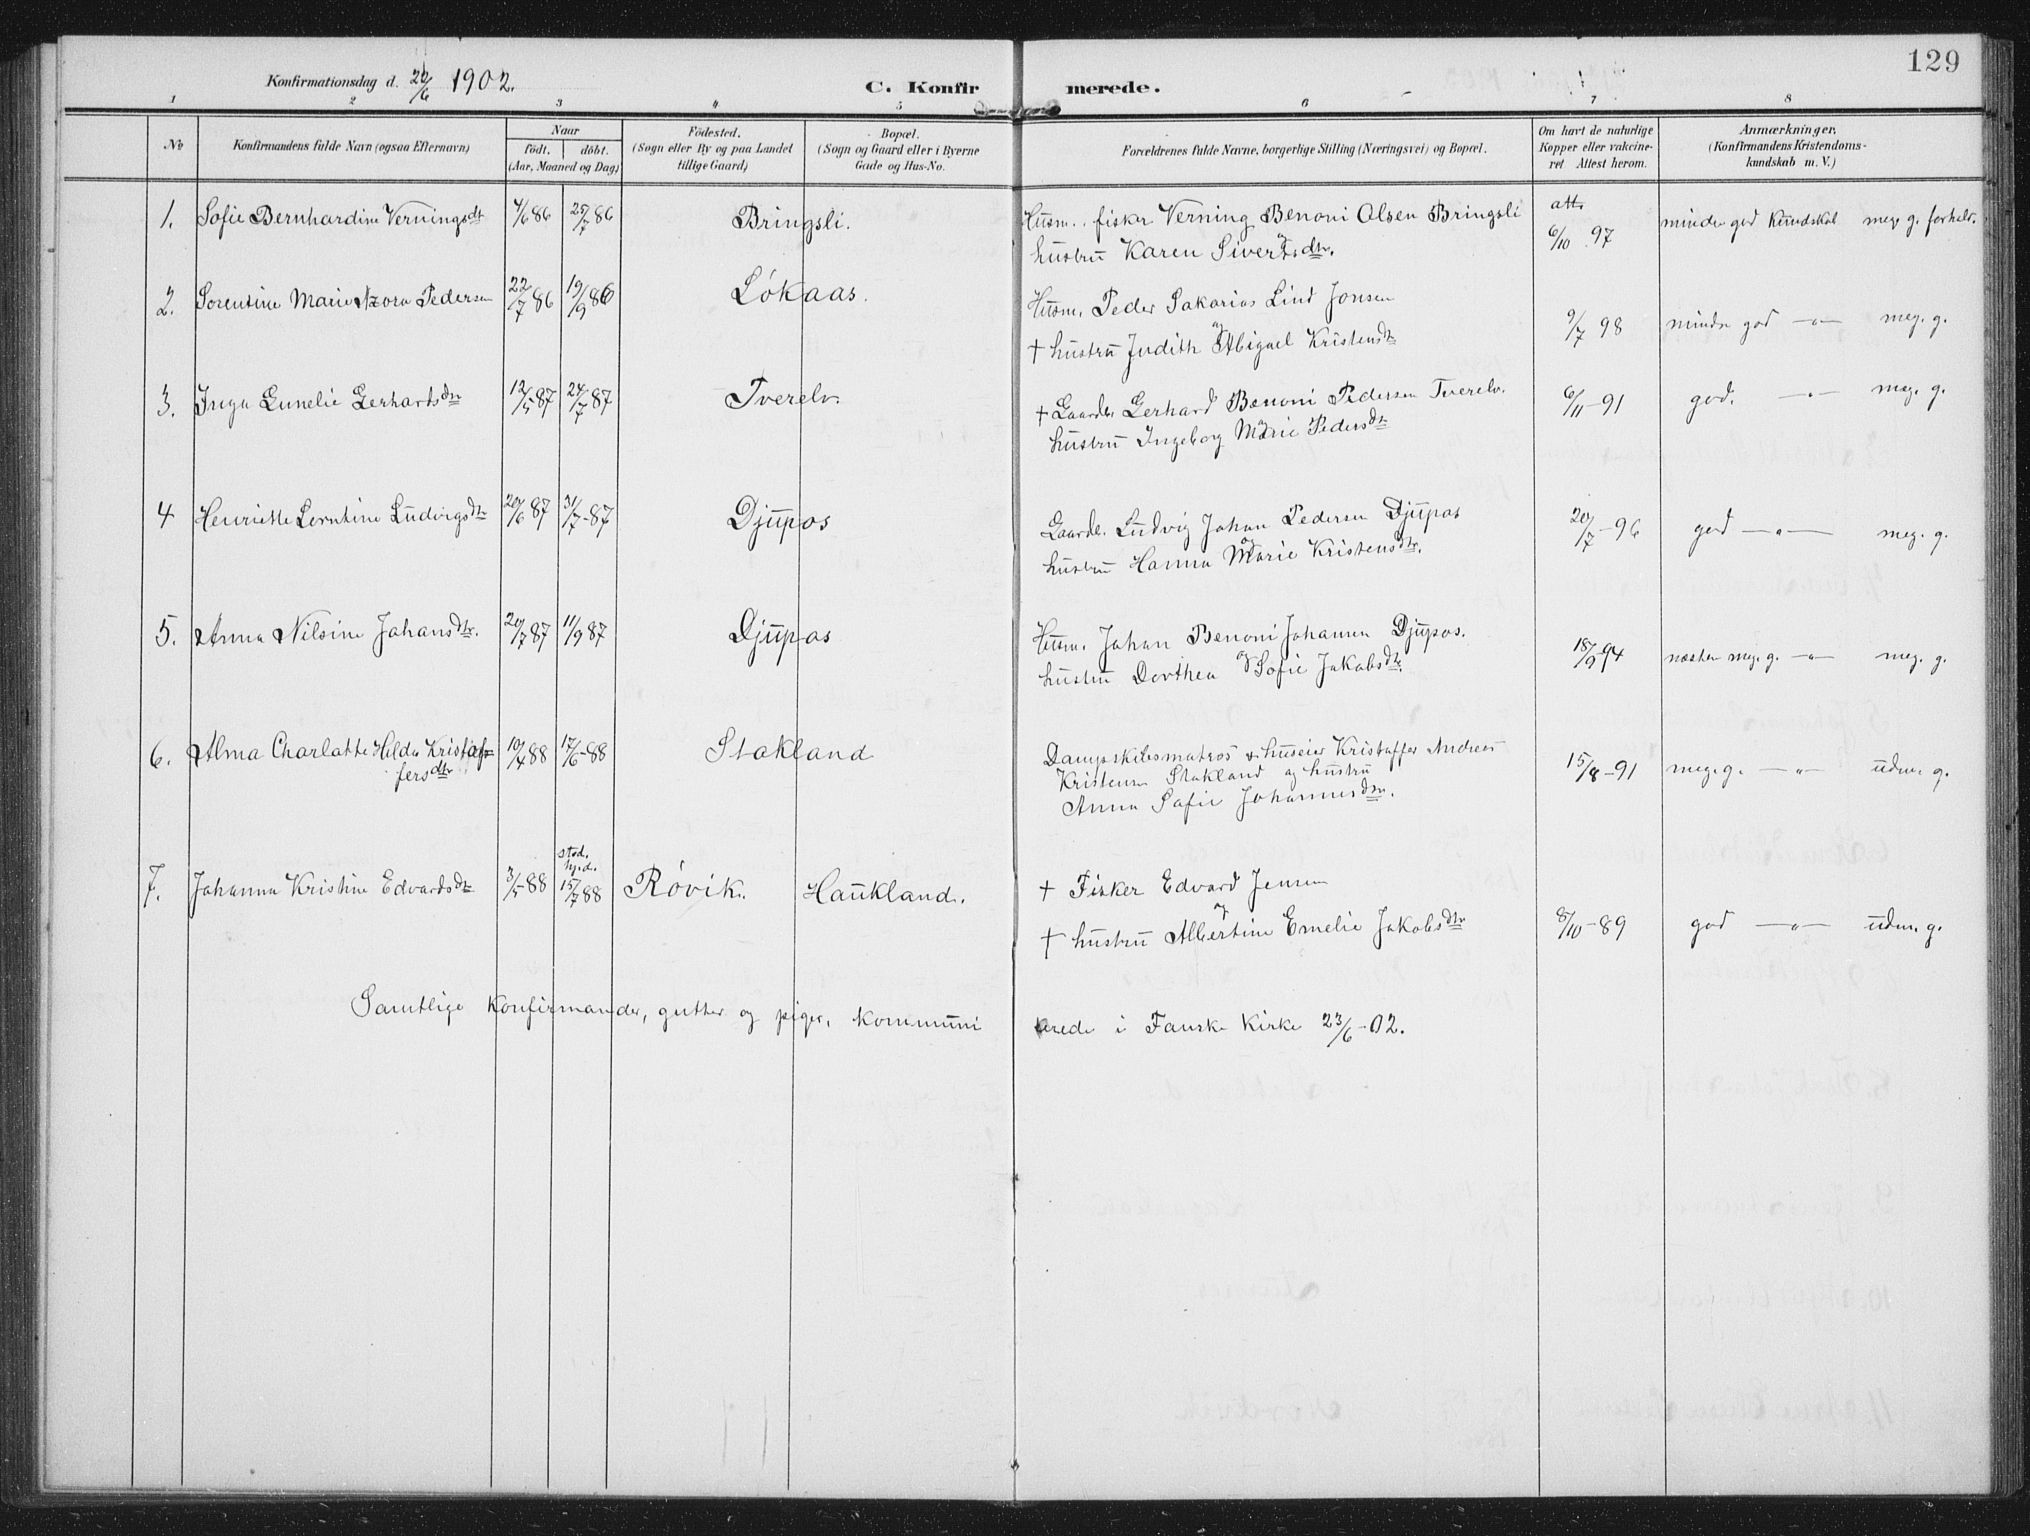 129
Konfirmationsdag d. 22/6 1902.
C. Konfirmerede.
1 2 3 4 5 6 7 8
No
Konfirmandens fulde Navn (ogsaa Efternavn)
Naar
födt. döbt.
(Aar, Maaned og Dag)
Födested.
(Sogn eller By og paa Landet
tillige Gaard)
Bopæl.
(Sogn og Gaard eller i Byerne
Gade og Hus-No.
Forældrenes fulde Navne, borgerlige Stilling (Næringsvei) og Bopæl.
Om havt de naturlige
Kopper eller vakcine-
ret Attest herom.
Anmærkninger.
(Konfirmandens Kristendoms-
kundskab m. V.)
1. Sofie Bernhardine Verningsdt 4/6 86 25/7 86 Bringsli. Husm. fisker Verning Benoni Olsen Bringsli att. 6/10 97 mindre god Kundskab meg. g. forhold.
og hustru Karen Sivertsdtr.
2. Sorentine Marie Nzora Pedersen 22/7 86 19/9 86 Løkaas. Husm. Peder Sakarias Lind Jonsen 9/7 98 mindre god —"— meg. g.
og † hustru Judith Abigael Kristensdtr
3. Inga Lunelie Gerhartsdtr 12/5 87 24/7 87 Tverelv. † Gaardbr. Gerhard Benoni Pedersen Tverelv. 6/11-91 god. —"— meg. g.
og hustru Ingeborg Marie Pedersdtr
4 Henriette Lorntine Ludvigsdtr 20/6 87 31/7-87 Djupos Gaardb. Ludvig Johan Pedersen Djupos 20/7-96 god —"— meg. g.
og hustru Hanna Marie Kristensdtr.
5. Anna Nilsine Johansdtr. 20/7 87 11/9 87 Djupos Husm. Johan Benoni Johansen Djupos. 18/9-94 næsten meg. g. —"— meg. g.
og hustru Dorthea Sofie Jakobsdtr.
6. Alma Charlotte Hilda Kristof- 10/4 88 17/6-88 Stokland Dampskibsmatros & huseier Kristoffer Andreas 15/8-91 meg. g. —"— udm. g.
fersdtr Kristensen Stokland og hustru
Anna Sofie Johannesdtr.
7. Johanna Kristine Edvardsdtr 3/5 88 stad. hj.d. 15/7 88 Røvik. Haukland. † Fisker Edvard Jensen
og † hustru Albertine Emelie Jakobsdtr 8/10-89 god —"— udm. g.
Samtlige Konfirmander, gutter og piger, kommunicerede i Fauske Kirke 23/6-02.